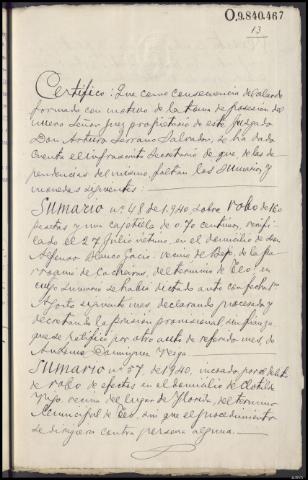 O,9.840.467
13
Certifico: Que como consecuencia del alarde
formado con motivo de la toma de posesión del
nuevo Señor Juez propietario de este Juzgado
Don Arturo Serrano Salvador, se ha dado
cuenta el infrascrito Secretario de que de las de-
pendencias del mismo, faltan los sumarios y
monedas siguientes:
Sumario nº 48 de 1.940, sobre robo de 160
pesetas y un cajetilla de 0,70 centimos, verifi-
cado el 27 Julio ultimo, en el domicilio de Don
Blanco vecino de de la pa-
rroquia de Cacheiras, del término de Teo; en
cuyo sumario se habia dictado auto con fecha
Agosto siguiente mes, declarando procesado y
decretando la prisión provisional sin fianza
que se ratificó por otro auto de referido mes, de
Antonio
Sumario nº 57, de 1940, iniciado por el delito
de robo de efectos en el domicilio de Clotilde
vecina del lugar de Florida, del término
Municipal de Teo, sin que el procedimiento
se dirigiera contra persona alguna.